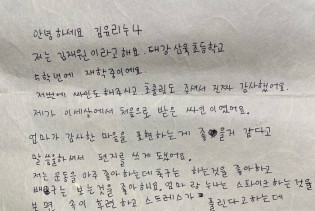 안녕하세요 김유리누나
저는 김재원이라고해요. 대강삼육초등학교
5학년에 재학중이에요.
저번에 싸인도 해주시고 초콜릿도 주셔서 진짜 감사했어요.
제가 이세상에서 처음으로 받은 싸인이였어요.
엄마가 감사한 마음을 표현하는게 좋을거 같다고
말씀을하셔서 편지를 쓰게 되었어요.
저는 운동을 아주 좋아하는데 축구는 하는것을 좋아하고
배구는 보는것을 좋아해요. 엄마랑 누나는 스파이크하는것을
보면 속이 후련하고 스트레스가 풀린다고하는데